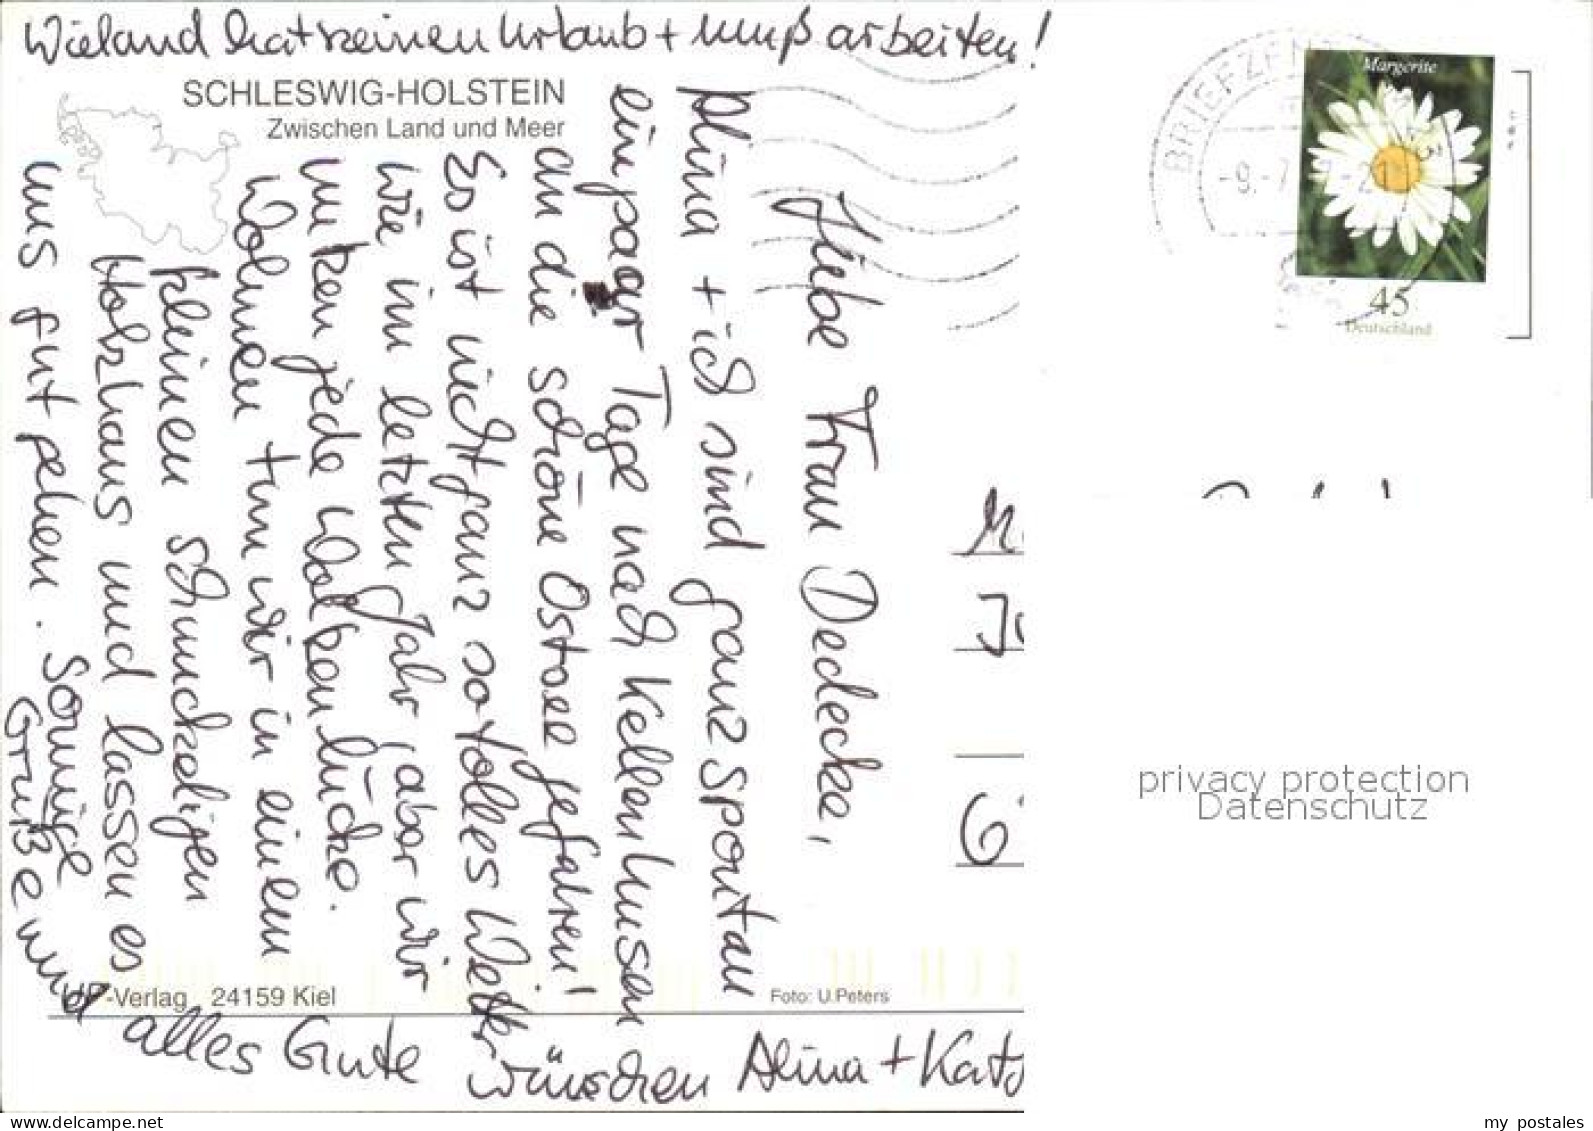 Wieland hat keinen Urlaub + muß arbeiten!
SCHLESWIG-HOLSTEIN
Zwischen Land und Meer
Liebe Frau Dedecke,
Alina + ich sind ganz spontan
ein paar Tage nach Kellenhusen
an die schöne Ostsee gefahren!
Es ist nicht ganz so tolles Wetter
wie im letzten Jahr, aber wir
nutzen jede Wolkenlücke.
Wohnen tun wir in einem
kleinen schnuckeligen
Holzhaus und lassen es
uns gut gehen. Sonnige
Grüße und
alles Gute
wünschen Alina + Kat
-Verlag 24159 Kiel
Foto: U.Peters
BRIEFZEN
-9.-7
Margerite
45
Deutschland
privacy protection
Datenschutz
my postales